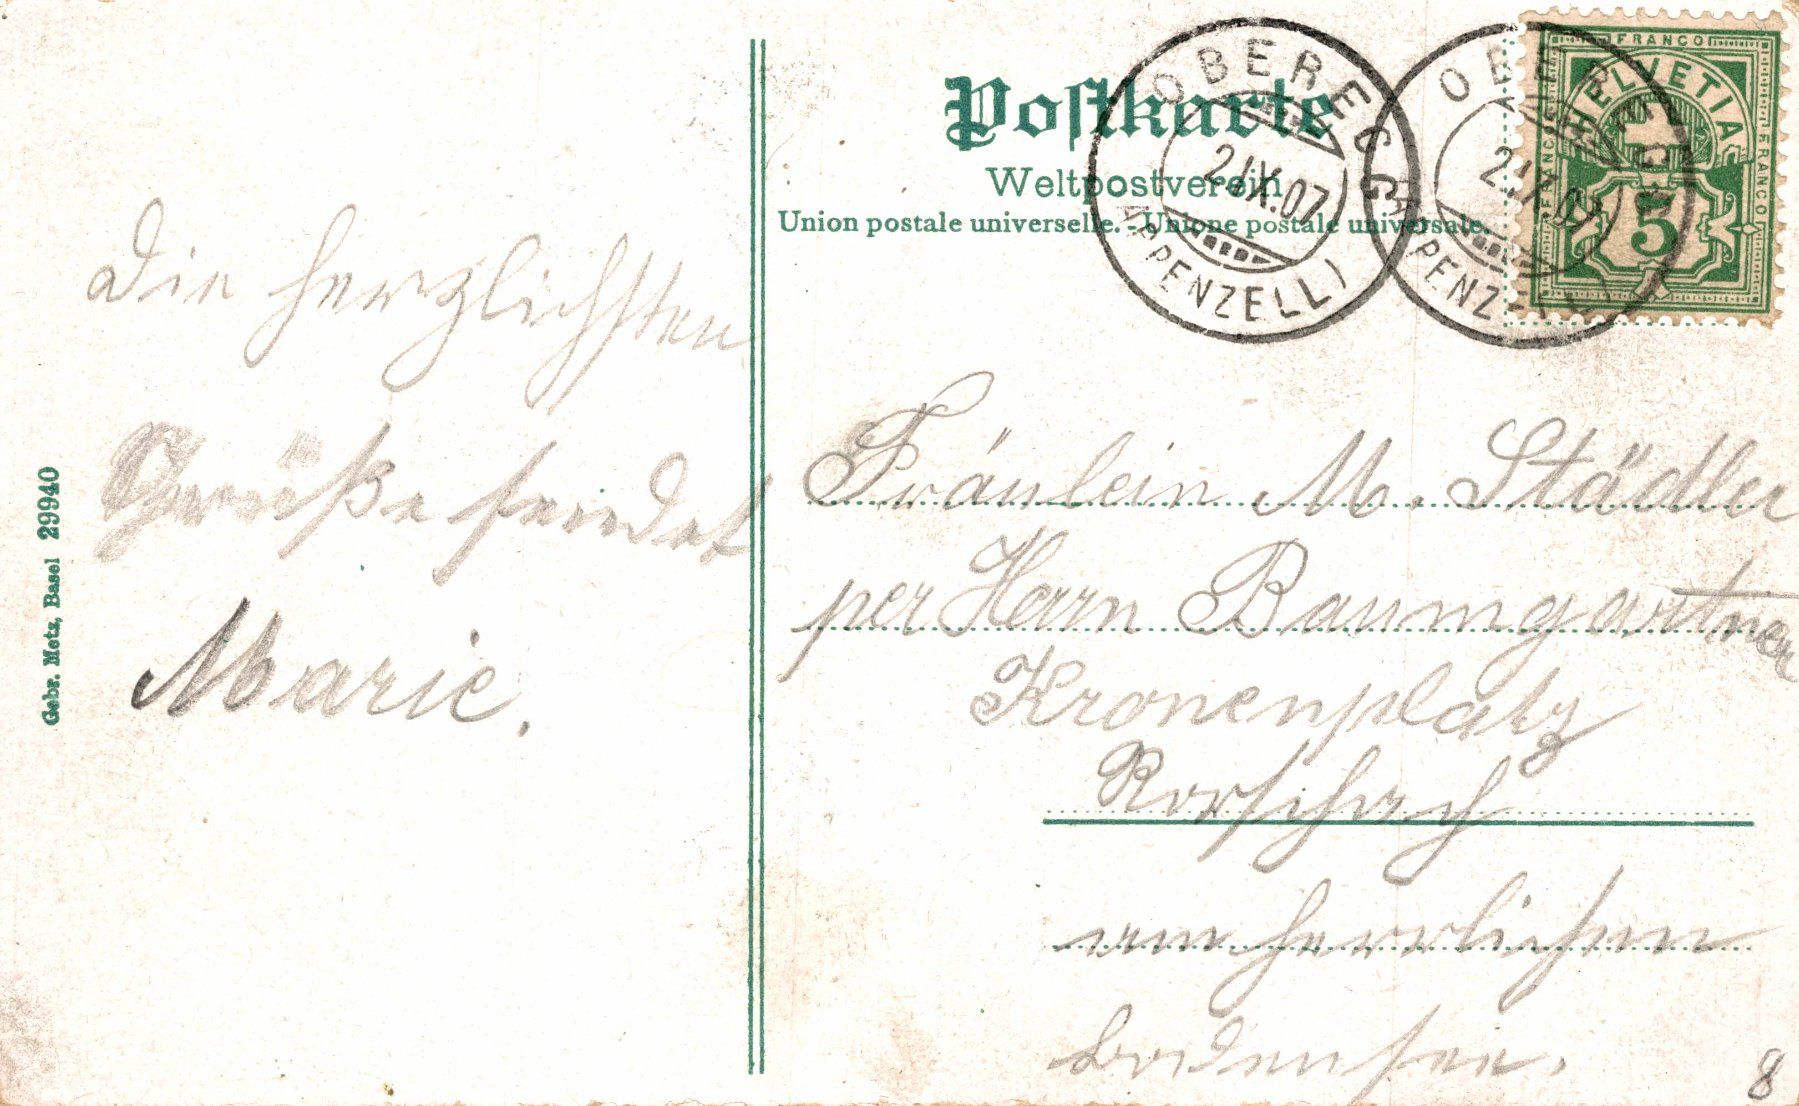 Postkarte
Weltpostverein
Union postale universelle. - Unione postale universale.
OBEREGG
2.IX.07
(APPENZELL)
OBEREGG
2.IX.07
(APPENZELL)
FRANCO
FRANCO
FRANCO
HELVETIA
5
Die herzlichsten
Grüße sendet
Marie.
Fräulein M. Städler
per Herrn Baumgartner
Kronenplatz
Rorschach
am herrlichen
Bodensee.
Gebr. Metz, Basel 29940
8